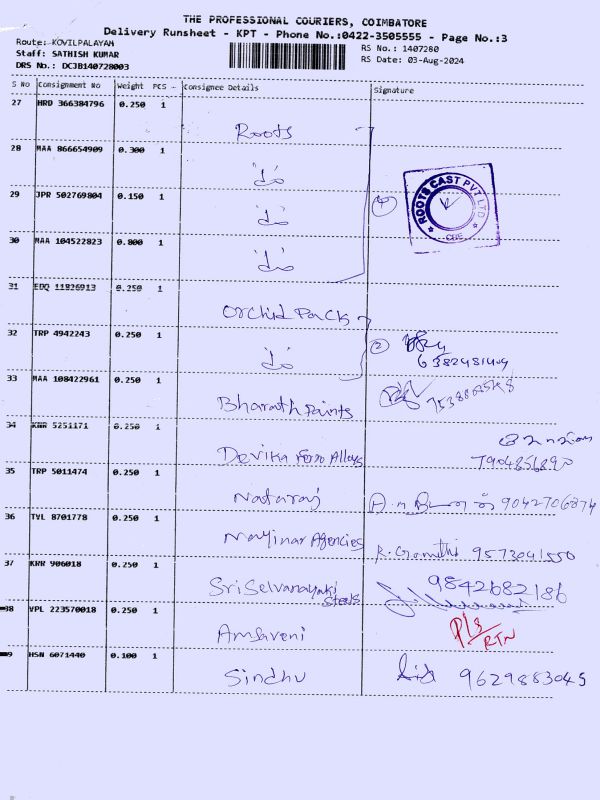 THE PROFESSIONAL COURIERS, COIMBATORE
Delivery Runsheet - KPT - Phone No.:0422-3505555 - Page No.:3
Route: KOVILPALAYAM
RS No.: 1407280
Staff: SATHISH KUMAR
RS Date: 03-Aug-2024
DRS No.: DCJB140728003
S No Consignment No Weight PCS Consignee Details Signature
27 HRD 366384796 0.250 1
Roots
28 MAA 866654909 0.300 1
do
29 JPR 502769804 0.150 1
do
1
ROOTS CAST PVT LTD
CBE
30 MAA 104522823 0.800 1
do
31 EDQ 11826913 0.250 1
Orchid Pack
32 TRP 4942243 0.250 1
do
2
6382481409
33 MAA 108422961 0.250 1
Bharath Paints
34 KNR 5251171 0.250 1
Devika Ferro Alloys
7904856890
35 TRP 5011474 0.250 1
Nataraj
9042706874
36 TVL 8701778 0.250 1
Nayinar Agencies
9573041550
37 KRR 906018 0.250 1
Sri Selvanayaki Steels
9842682186
38 VPL 223570018 0.250 1
Amsaveni
Pls RTN
HSN 6071440 0.100 1
Sindhu
9629883045